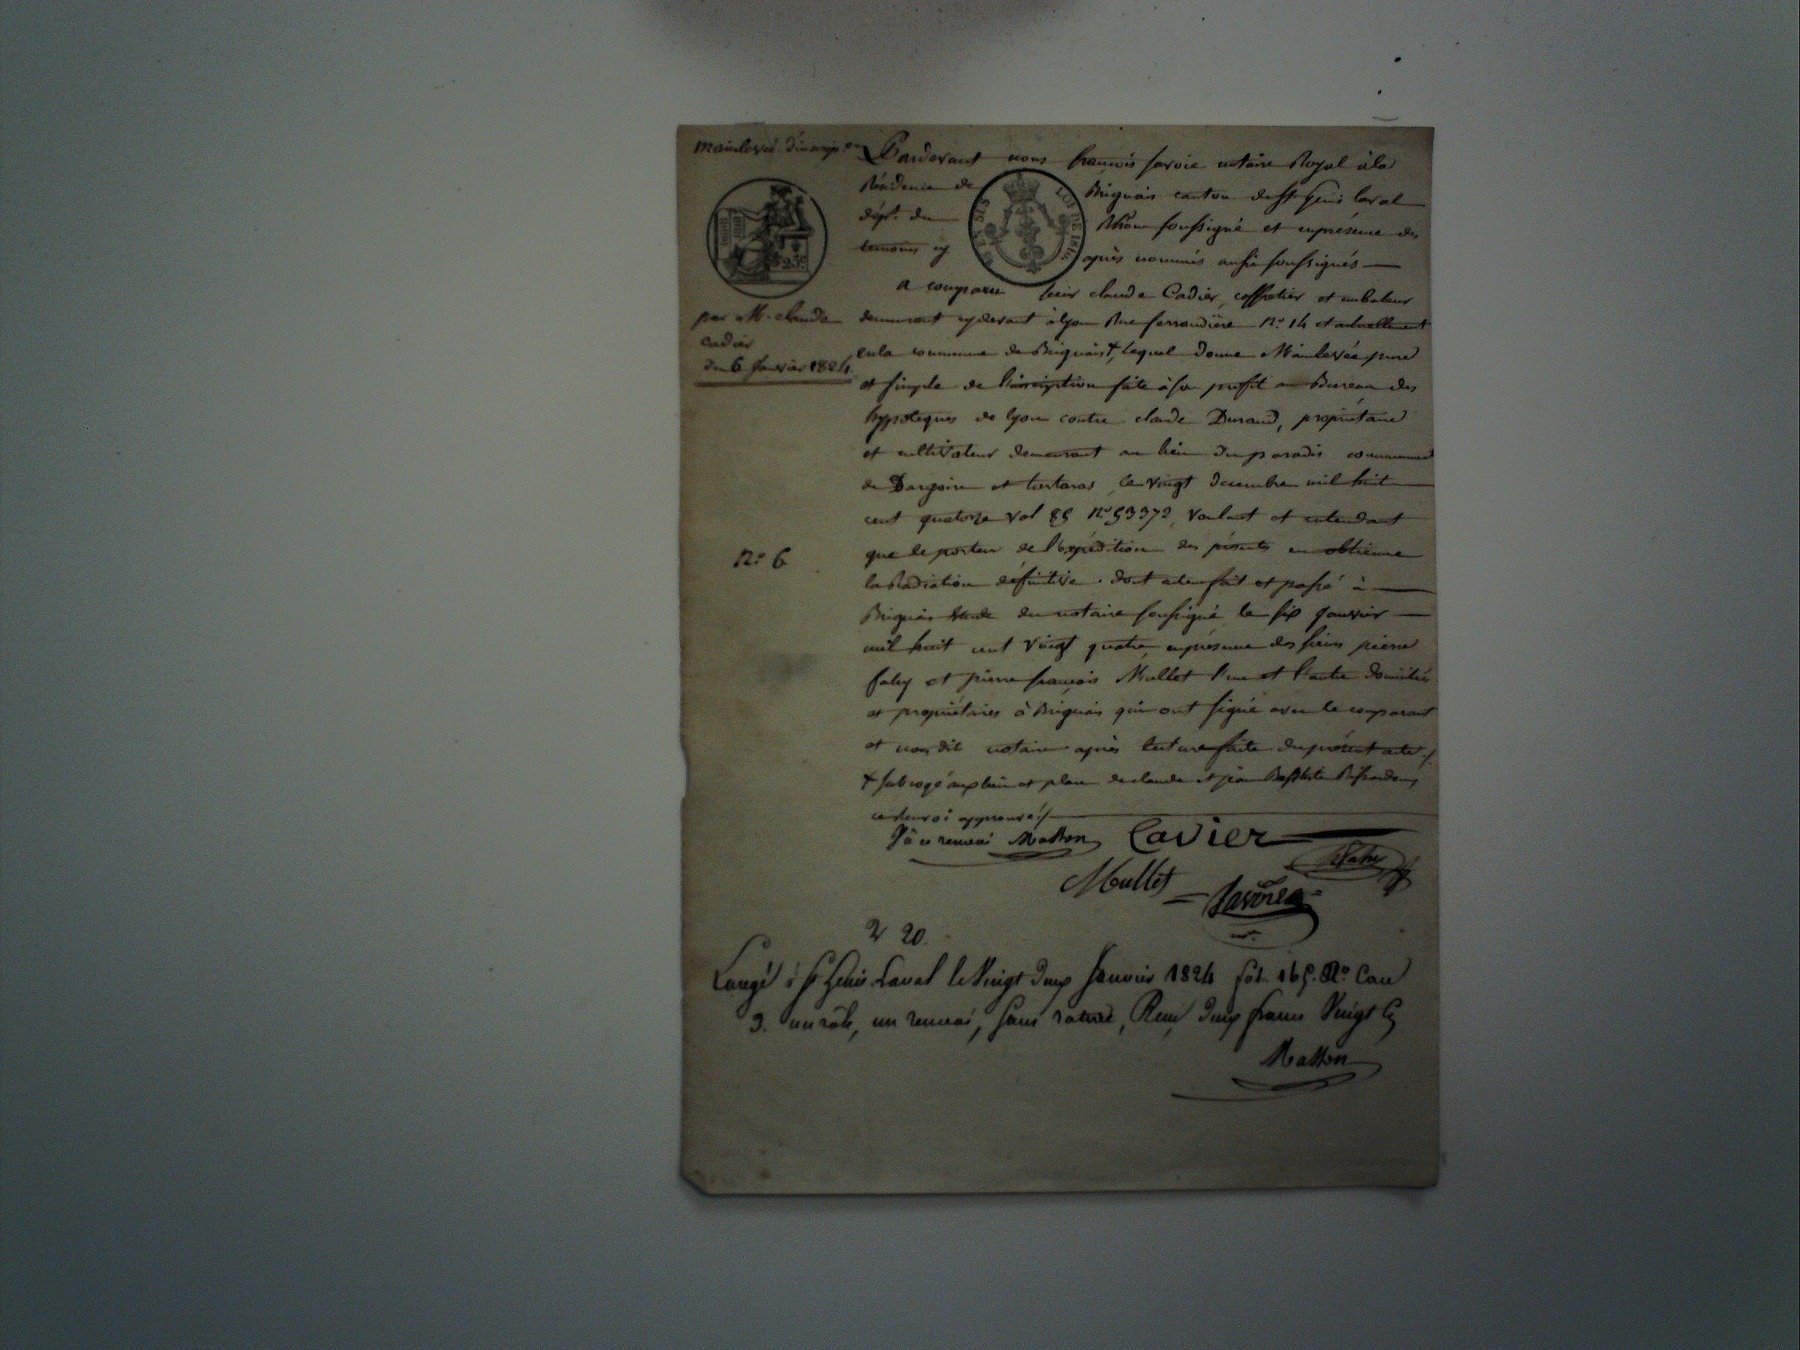 Mainlevée d'inscrip.on
Pardevant nous françois savoie notaire Royal à la
Résidence de Brignais canton de St genis laval
dépt. du Rhône soussigné et enprésence des
temoins cy après nommés aussi soussignés
LOI DE 1816
25c
A comparu sieur claude Cadier, coffretier et embaleur
par M. claude
cadier
du 6 Janvier 1824
demeurant cydevant à lyon Rue ferrandière N.o 14 et actuellement
enla commune de Brignais +, lequel donne Mainlevée pure
et simple de l'inscription faite à son profit au Bureau des
hypoteques de lyon contre claude Durand, propriétaire
et cultivateur demeurant au lieu du paradis commune
de Dargoire et tartaras, le vingt decembre mil huit
cent quatorze vol 85 N.o 53372, voulant et entendant
N.o 6
que le porteur de l'expédition des présentes en obtienne
la Radiation définitive. dont acte fait et passé à
Brignais étude du notaire soussigné le six Janvier
mil huit cent vingt quatre, enprésence des sieurs pierre
faby et pierre françois Mullet l'un et l'autre domiciliés
et propriétaires à Brignais qui ont signé avec le comparant
et nous dit notaire après lecture faite du présent acte ./.
+ subrogé aux lieu et place de claude et jean Baptiste
ce renvoi approuvé ./.
V'à ce renvoi Masson Cavier
Mullet Savoie
2 20.
Enregé à St Genis-Laval le Vingt deux Janvier 1824 fol. 165. R.o Case
3. un rôle, un renvoi, sans rature, Reçu deux francs Vingt C.
Masson